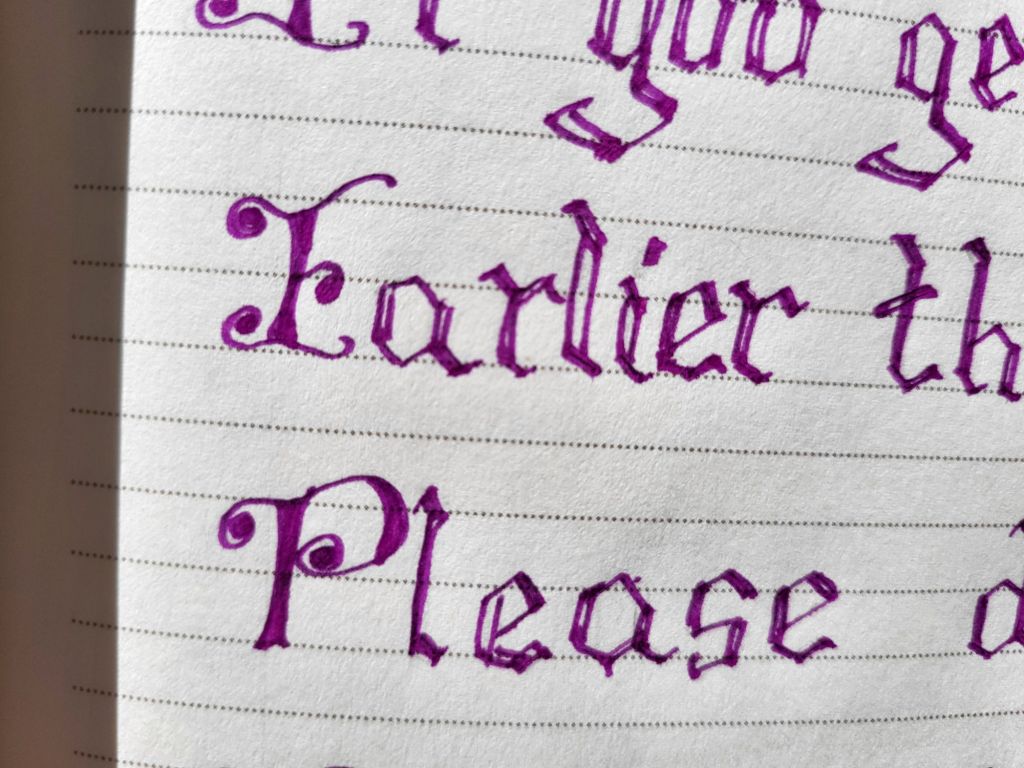 If you ge
Earlier th
Please